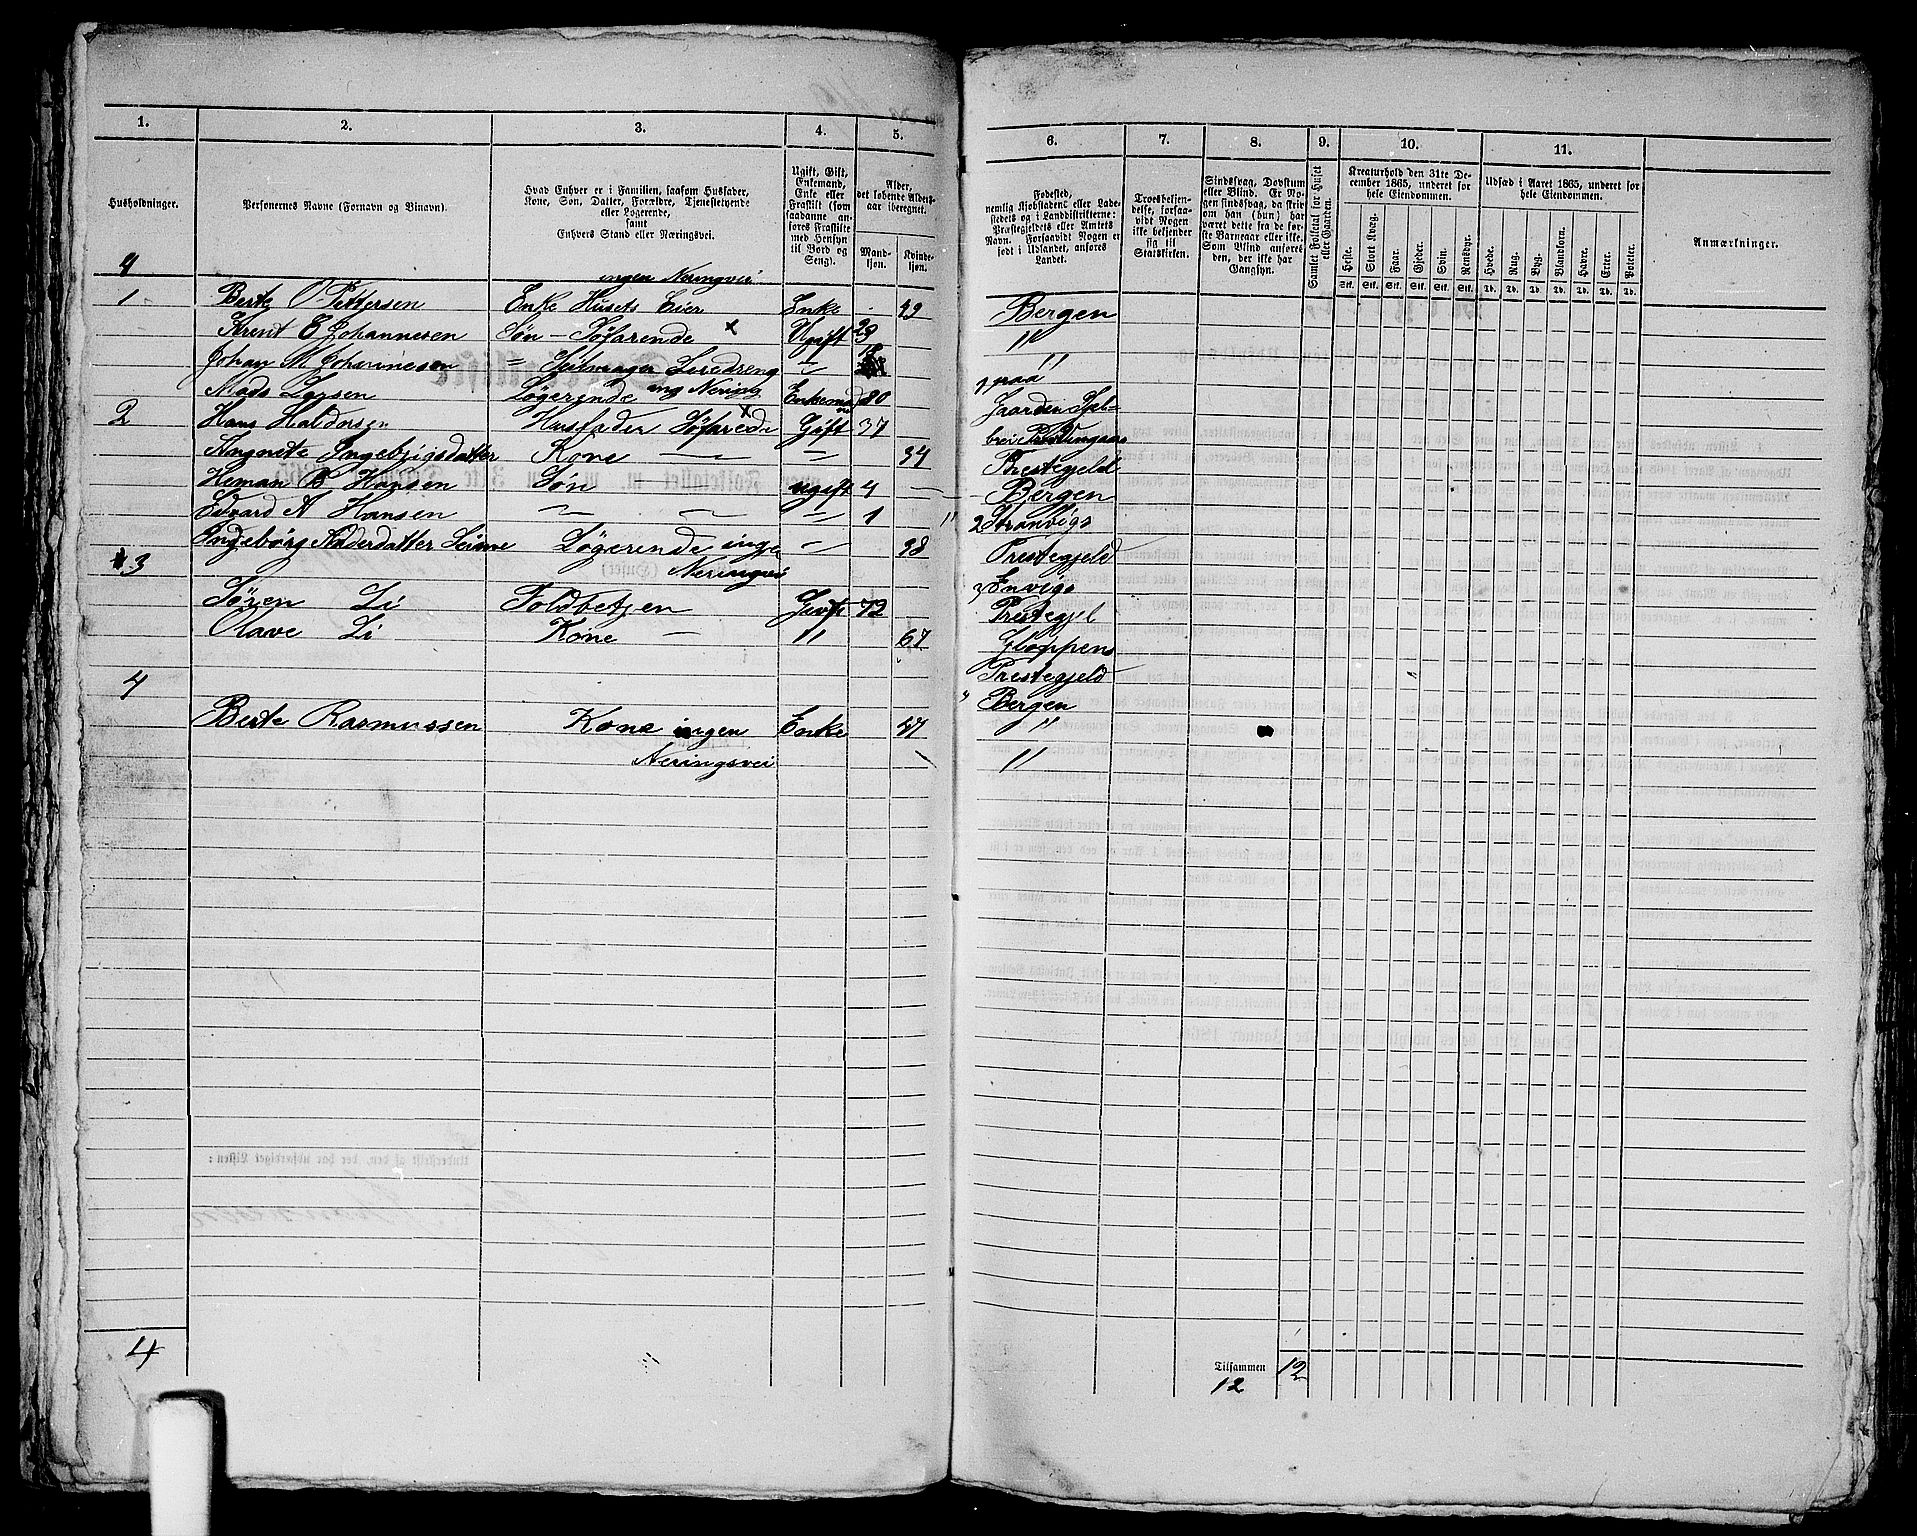 1. 2. 3. 4. 5.
Husholdninger.
Personernes Navne (Fornavn og Vinavn).
Hvad Enhver er i Familien, saasom Husfader,
Kone, Søn, Datter, Forældre, Tjenestetyende
eller Logerende,
samt
Enhvers Stand eller Næringsvei.
Ugift, Gift,
Enkemand,
Enke eller
Fraskilt (som
saadanne an-
føres Fraskilte
med Hensyn
til Bord og
Seng).
Alder,
det løbende Alders-
aar iberegnet.
Mand-
kjøn.
Kvinde-
kjøn.
4 ingen Neringvei
1 Berte O Pettersen Enke Husets Eier Enke
Johannesen Søn - Søfarende x Ugift 23
Johan M Johannesen
Mads Larsen Løgerende ing Nering Enkemand 80
2 Hans Haldorsen Husfader Søfarede x Gift 37
Angnete Ingebrigsdatter Kone 34
Heman B Hansen Søn ugift 4
Edvard A Hansen 1
3 Ingebørg Løgerende inge 38
Neringvei
Søren Li Toldbetjen 72
Olave Li Kone " 67
4
Berte Rasmussen Kone ingen Enke 47
Neringsvei
4
6. 7. 8. 9. 10. 11.
Fødested,
nemlig Kjøbstadens eller Lade-
stedets og i Landdistrikterne:
Præstegjeldets eller Amtets
Navn. Forsaavidt Nogen er
født i Udlandet, anføres
Landet.
Troesbekjen-
delse, forsaa-
vidt Nogen
ikke bekjender
sig til
Statskirken.
Sindssvag, Døvstum
eller Blind. Er No-
gen sindssvag, da skriv
om han (hun) har
været dette fra de før-
ste Barneaar eller ikke.
Som Blind anføres
den, der ikke har
Gangsyn.
Samlet Folketal for Huset
eller Gaarden.
Kreaturhold den 31te De-
cember 1865, underet for
hele Eiendommen.
Heste. Stort Kvæg. Faar. Gjeder. Svin. Rensdyr.
Stk. Stk. Stk. Stk. Stk. Stk.
Udsæd i Aaret 1865, underet for
hele Eiendommen.
Hvede. Rug. Byg. Blandkorn. Havre. Erter. Poteter.
Td. Td. Td. Td. Td. Td. Td.
Anmærkninger.
Bergen
"
"
1 paa
Gaarden
Prestegjeld
Bergen
" 2 Stranvigs
Prestegjeld
3
Prestegjel
Gloppens
Prestegjeld
" Bergen
"
"
Tilsammen 12
12